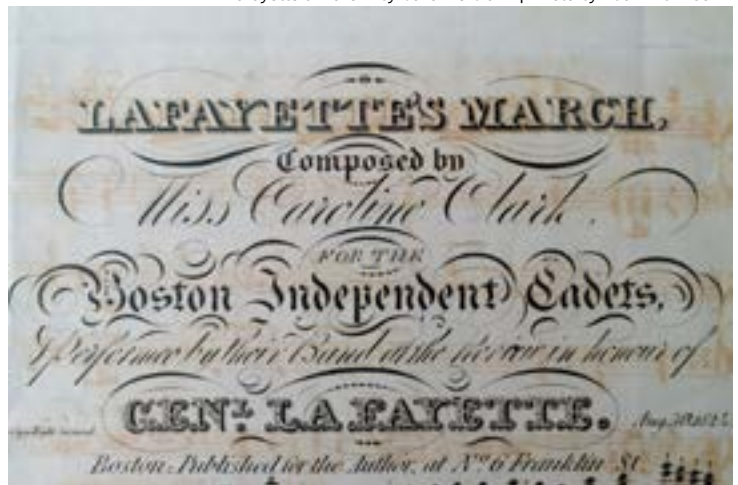 LAFAYETTE'S MARCH,
Composed by
Miss Caroline Clark.
FOR THE
Boston Independent Cadets,
& Performed by their Band at the review in honour of
GENL. LA FAYETTE.
Boston. Published for the Author, at No. 6 Franklin St.